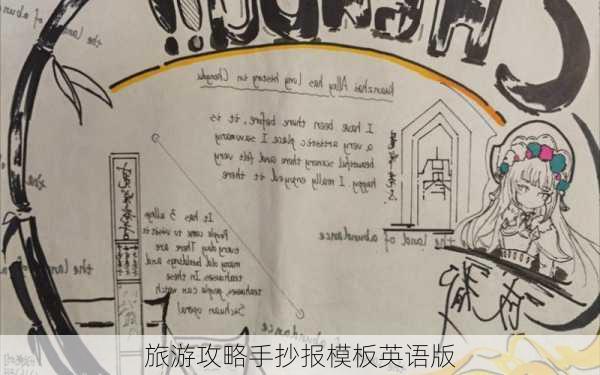 CHENGDU!!
the land of abun
Kuanzhai Alley has long history in Chengdu
I have been there before, it is
a very artistic place I saw many
beautiful scenery there and felt very
happy. I really enjoyed it there
the land of abundance
It has 3 alleys
People come to visit it
every day There are
many old buildings and
teahouses. In these
teahouses, people can watch
Sichuan opera)
the lan
the land
abundance
旅游攻略手抄报模板英语版